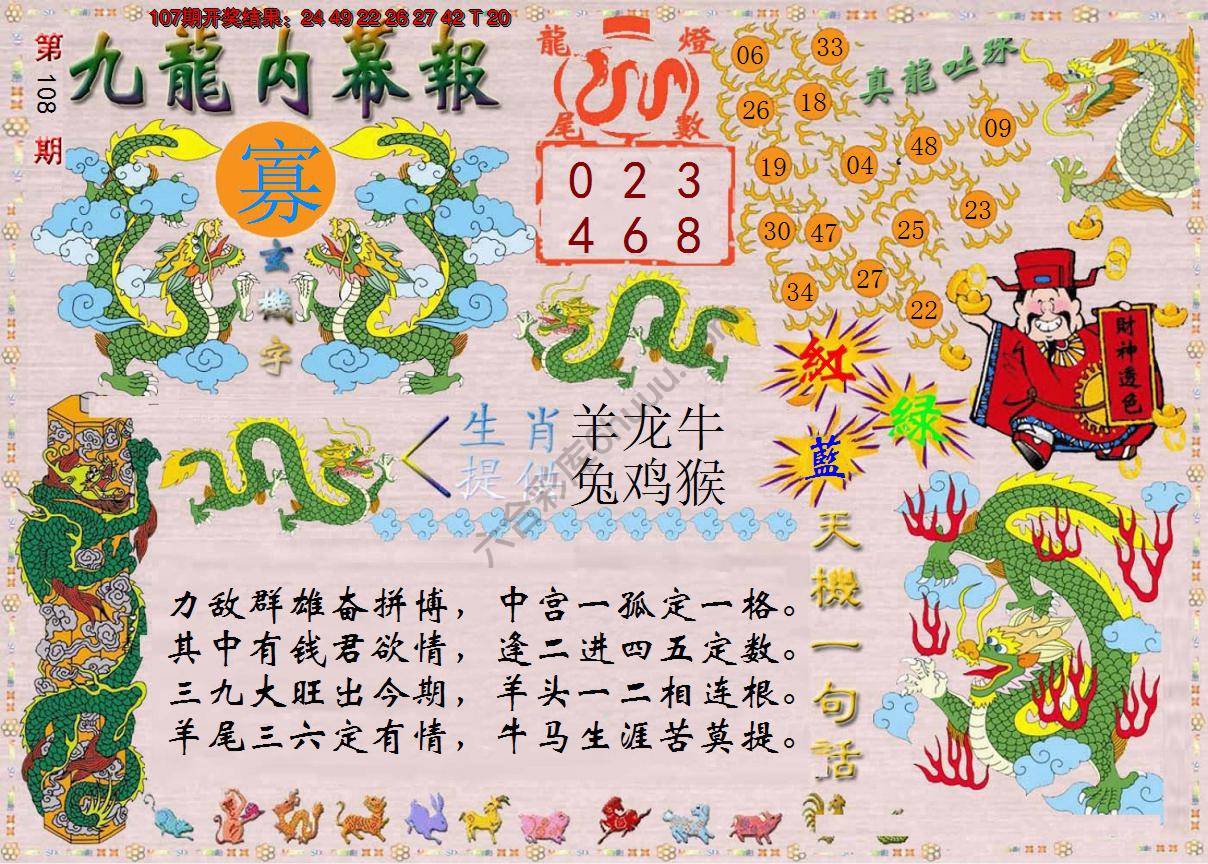 107期开奖结果：24 49 22 26 27 42 T 20
第108期
九龍内幕報
寡
玄機字
龍燈
尾數
0 2 3
4 6 8
真龍吐珠
06
33
26
18
09
48
19
04
23
30
47
25
27
34
22
財神透色
紅
綠
藍
生肖 羊龙牛
提供 兔鸡猴
天機一句話
力敌群雄奋拼博，中宫一孤定一格。
其中有钱君欲情，逢二进四五定数。
三九大旺出今期，羊头一二相连根。
羊尾三六定有情，牛马生涯苦莫提。